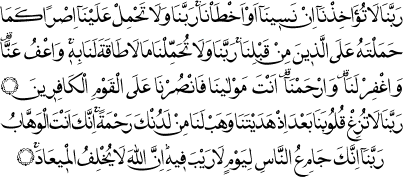 رَبَّنَا لَا تُؤَاخِذْنَا اِنْ نَسِينَا اَوْ اَخْطَأْنَا رَبَّنَا وَلَا تَحْمِلْ عَلَيْنَا اِصْرًا كَمَا
حَمَلْتَهُ عَلَى الَّذِينَ مِنْ قَبْلِنَا رَبَّنَا وَلَا تُحَمِّلْنَا مَا لَا طَاقَةَ لَنَا بِهِ وَاعْفُ عَنَّا
وَاغْفِرْ لَنَا وَارْحَمْنَا اَنْتَ مَوْلٰينَا فَانْصُرْنَا عَلَى الْقَوْمِ الْكَافِرِينَ
رَبَّنَا لَا تُزِغْ قُلُوبَنَا بَعْدَ اِذْ هَدَيْتَنَا وَهَبْ لَنَا مِنْ لَدُنْكَ رَحْمَةً اِنَّكَ اَنْتَ الْوَهَّابُ
رَبَّنَا اِنَّكَ جَامِعُ النَّاسِ لِيَوْمٍ لَا رَيْبَ فِيهِ اِنَّ اللّٰهَ لَا يُخْلِفُ الْمِيعَادَ